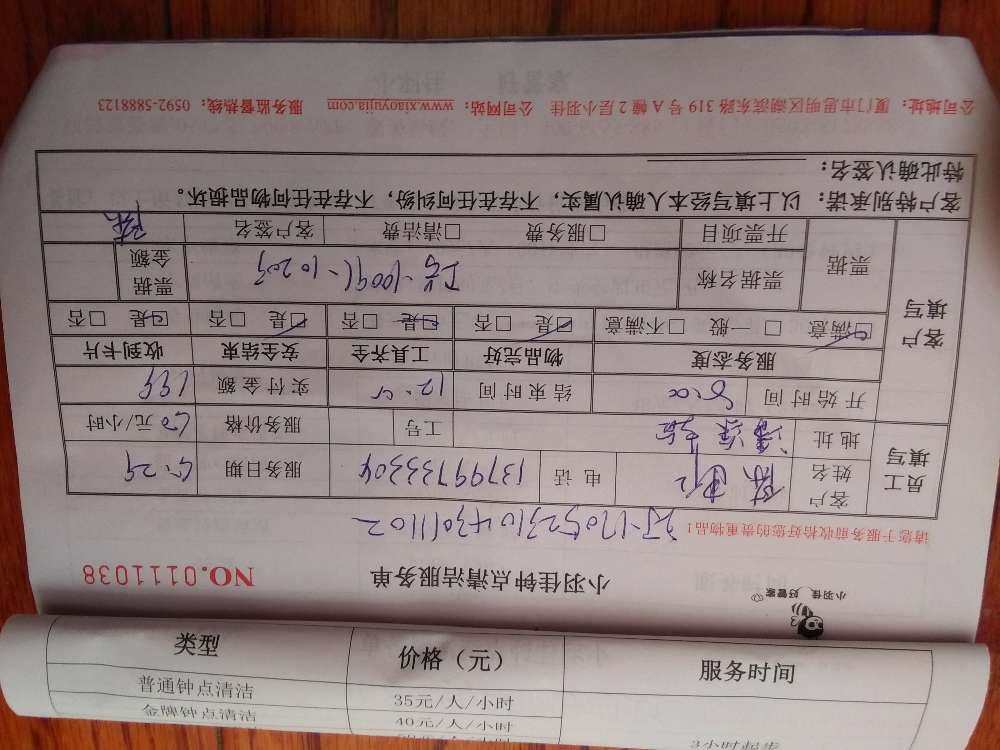 小羽佳 好管家
小羽佳钟点清洁服务单 NO.0111038
请您于服务前收拾好您的贵重物品！
员工填写
客户姓名 电话 13799733304 服务日期 5.29
地址 工号 服务价格 50元/小时
开始时间 8:00 结束时间 实付金额
客户填写
服务态度 物品完好 工具齐全 安全结束 收到卡片
□满意 □一般 □不满意 □是 □否 □是 □否 □是 □否 □是 □否
票据 票据名称 票据金额
开票项目 □服务费 □清洁费 客户签名
客户特别承诺：以上填写经本人确认属实，不存在任何纠纷，不存在任何物品损坏。
特此确认签名：
公司地址：厦门市思明区湖滨东路 319 号 A 幢 2 层小羽佳 公司网站：www.xiaoyujia.com 服务监督热线：0592-5888123
类型 价格（元） 服务时间
普通钟点清洁 35元/人/小时
金牌钟点清洁 40元/人/小时
3小时起步